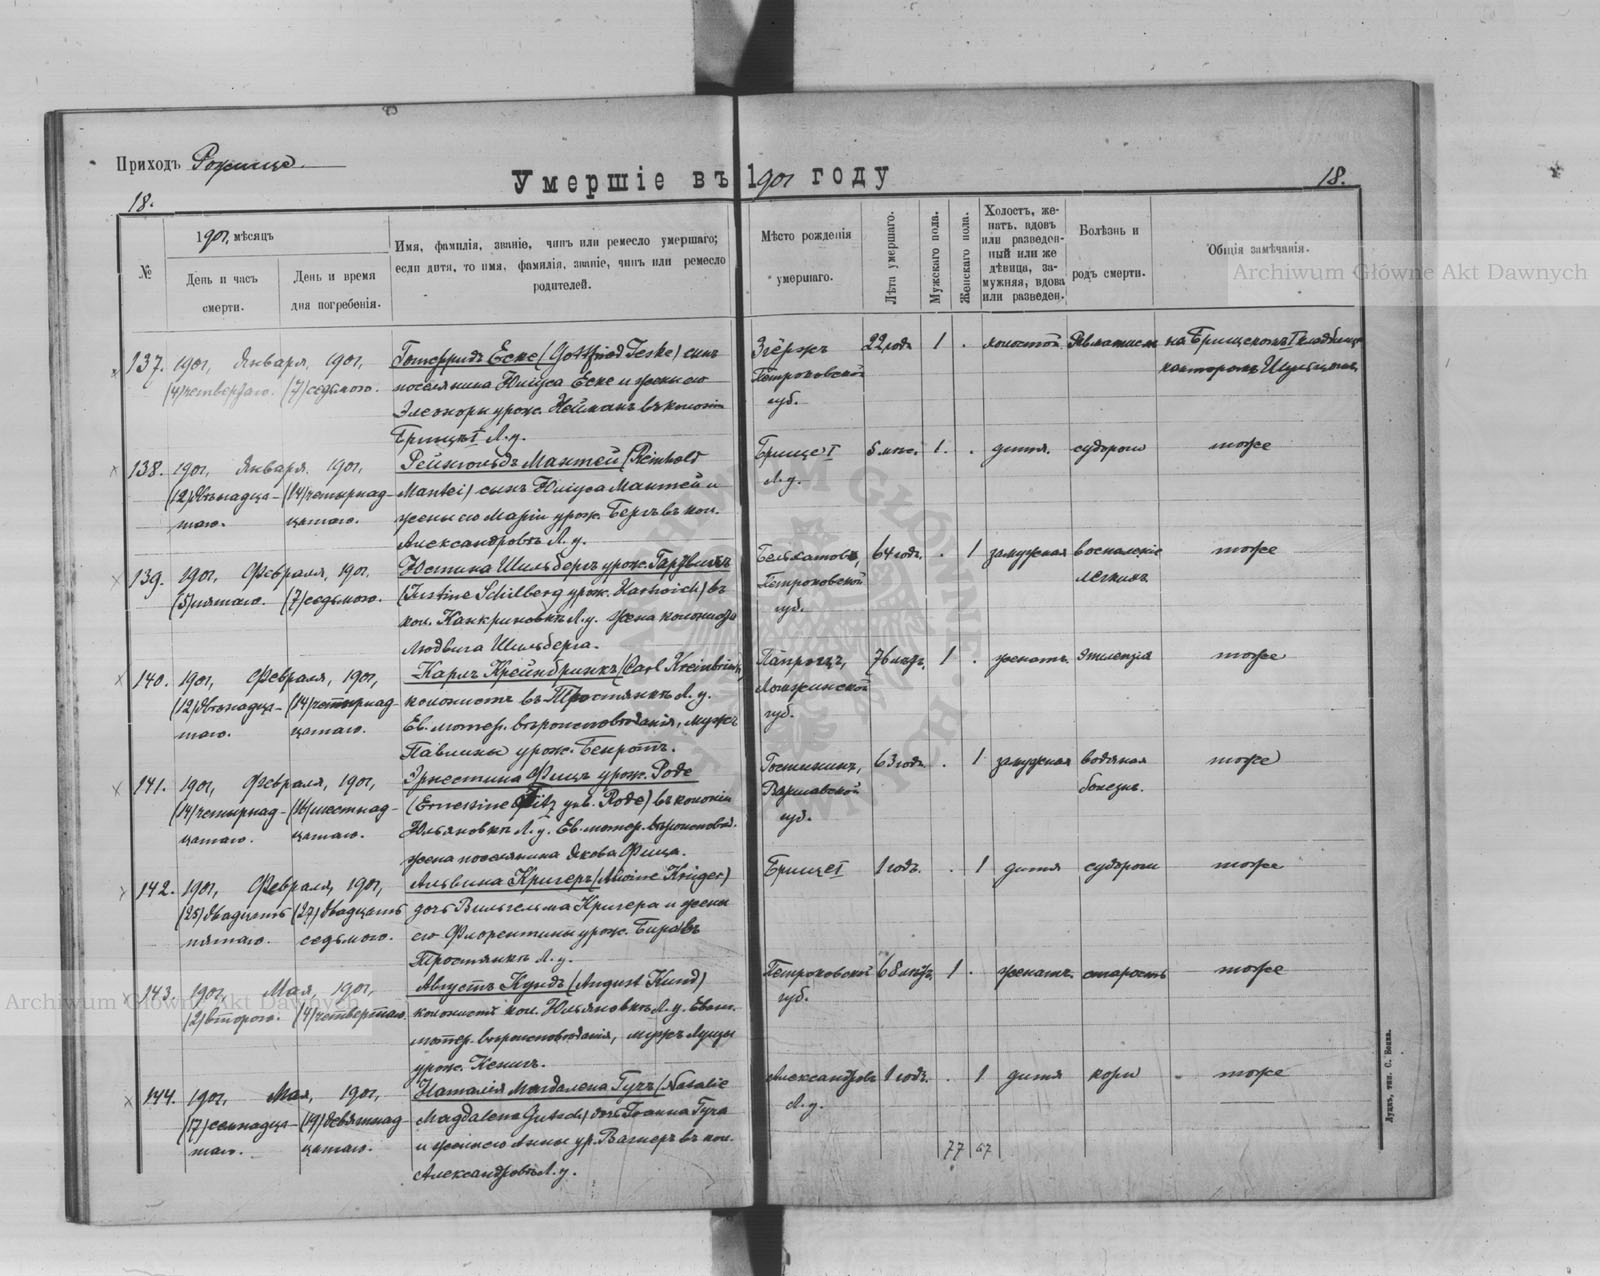 Приходъ Рожище
Умершіе въ 1901 году
18.
18.
№
1901, мѣсяцъ
День и часъ смерти.
День и время дня погребенія.
Имя, фамилія, званіе, чинъ или ремесло умершаго;
если дитя, то имя, фамилія, званіе, чинъ или ремесло
родителей.
Мѣсто рожденія
умершаго.
Лѣта умершаго.
Мужскаго пола.
Женскаго пола.
Холостъ, же-
натъ, вдовъ
или разведен-
ный или же
дѣвица, за-
мужняя, вдова
или разведен.
Болѣзнь и
родъ смерти.
Общія замѣчанія.
137. 1901, Января, 1901,
(4) четвертаго. (7) седьмого.
Готфридъ Еске (Gottfried Jeske) сынъ
поселянина Юліуса Еске и жены его
Элеоноры урож. Нейманъ въ колоніи
Брищѣ I Л.у.
Згержъ
Петроковской
губ.
22 года 1 . холостой Ревматизм на Брищскомъ I кладбище
канторомъ Шульцомъ
138. 1901, Января, 1901,
(12) двѣнадца- (14) четырнад-
таго. цатаго.
Рейнгольдъ Мантей (Reinhold
Mantei) сынъ Юліуса Мантей и
жены его Маріи урож. Бергъ въ кол.
Александровкѣ Л.у.
Брище I
Л.у.
5 мѣс. 1. . дитя. судороги тоже
139. 1901, Февраля, 1901,
(5) пятаго. (7) седьмого.
Юстина Шильбергъ урож. Гартвихъ
(Justine Schilberg урож. Hartwich) въ
кол. Канкриновкѣ Л.у. жена колониста
Людвига Шильберга.
Бельхатовъ,
Петроковской
губ.
64 годъ. . 1 замужная воспаленіе
легкихъ
тоже
140. 1901, Февраля, 1901,
(12) двѣнадца- (14) четырнад-
таго. цатаго.
Карлъ Крейнбринкъ (Carl Kreinbrink)
колонистъ въ Тростянкѣ Л.у.
Ев. лютер. вѣроисповѣданія, мужъ
Павлины урож. Бенротъ.
Ломжинской
губ.
76 лѣтъ. 1 . женатъ. эпилепзія тоже
141. 1901, Февраля, 1901,
(14) четырнад- (16) шестнад-
цатаго. цатаго.
Эрнестина Фицъ урож. Роде
(Ernestine Fitz ув. Rode) въ колоніи
Юльяновкѣ Л.у. Ев. лютер. вѣроисповѣд.
жена поселянина Якова Фица.
Гостининъ,
Варшавской
губ.
63 года . 1 замужная водяная
болезнь.
тоже
142. 1901, Февраля, 1901,
(25) двадцать (27) двадцать
пятаго. седьмого.
Альвина Кригеръ (Alwine Krüger)
дочь Вильгельма Кригера и жены
его Флорентины урож. Бира въ
Тростянкѣ Л.у.
Брище I 1 годъ. . 1 дитя судороги тоже
143. 1901, Мая, 1901,
(2) второго. (4) четвертаго.
Августъ Кундъ (August Kund)
колонистъ кол. Юльяновкѣ Л.у. Еван.
лютер. вѣроисповѣданія, мужъ Луизы
урож. Кенигъ.
Петроковской
губ.
68 лѣтъ. 1 . женатъ. старость тоже
144. 1901, Мая, 1901,
(17) семнадца- (19) девятнад-
таго. цатаго.
Наталія Магдалена Гучъ (Natalie
Magdalena Gutsch) дочь Іоанна Гуча
и жены его Анны ур. Вагнеръ въ кол.
Александровкѣ Л.у.
Александровк
Л.у.
1 годъ. . 1 дитя кори тоже
77 67
Луцкъ, тип. С. Бокла.
Archiwum Główne Akt Dawnych
Archiwum Główne Akt Dawnych